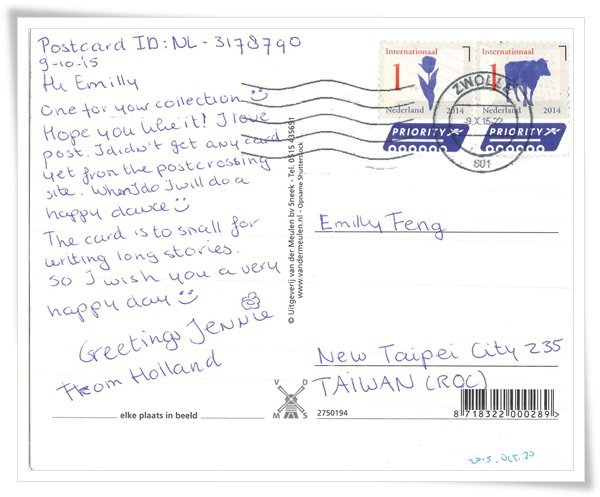 Postcard ID: NL - 3178790
9-10-15
Hi Emilly
One for your collection
Hope you like it! I love
post. I didn't get any card
yet from the postcrossing
site. When I do I will do a
happy dance
The card is to small for
writing long stories.
so I wish you a very
happy day
Greetings Jennie
From Holland
elke plaats in beeld
© Uitgeverij van der Meulen bv Sneek - Tel. 0515 435651
www.vandermeulen.nl - Opname Shutterstock
V D
M S
2750194
Internationaal
1
Nederland 2014
PRIORITY
Internationaal
1
Nederland 2014
PRIORITY
ZWOLLE
-9.X.15-22
601
Emilly Feng
New Taipei City 235
TAIWAN (ROC)
8 718322 000289 >
2015. Oct. 20